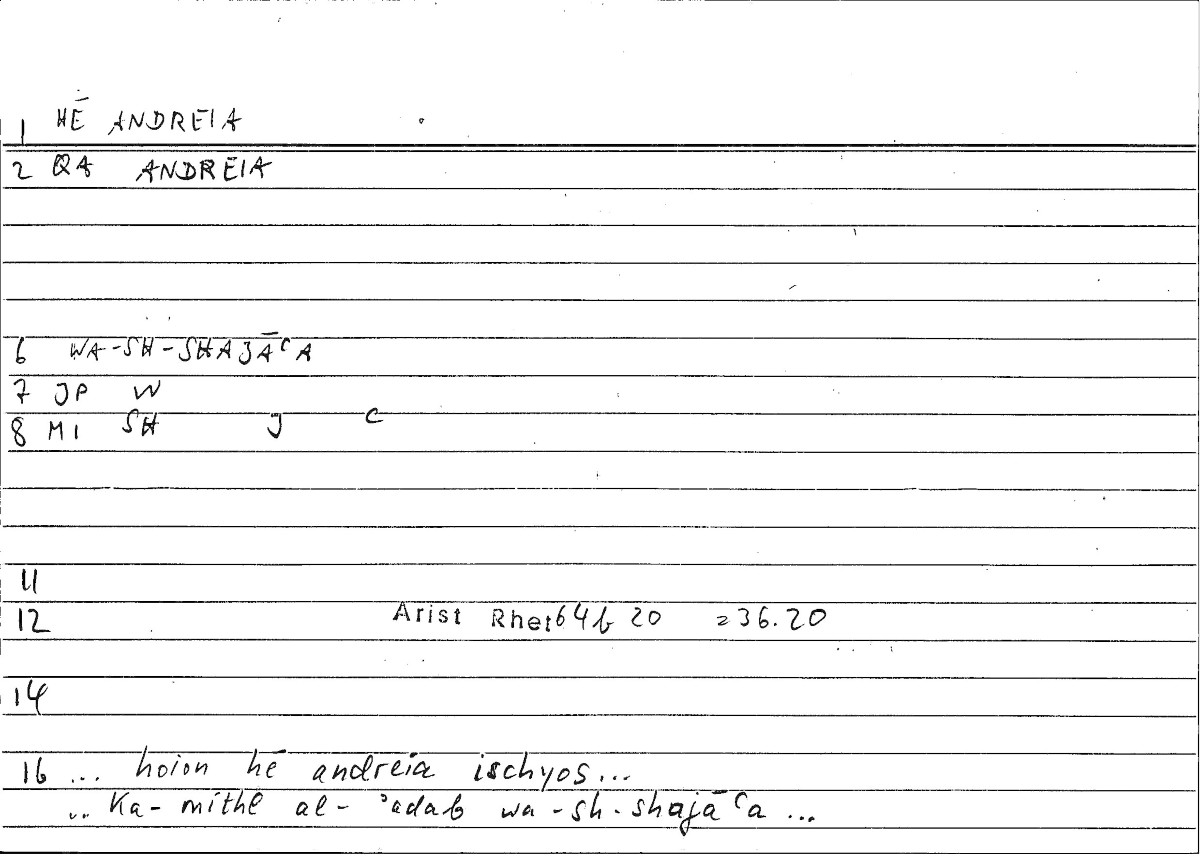 1 HĒ ANDREIA
2 QA ANDREIA
6 WA-SH-SHAJĀʿA
7 JP W
8 MI SH J ʿ
11
12 Arist Rhet 64b 20 = 36.20
14
16 ... hoion hē andreia ischyos...
... Ka-mithl al-ʾadab wa-sh-shajāʿa ...